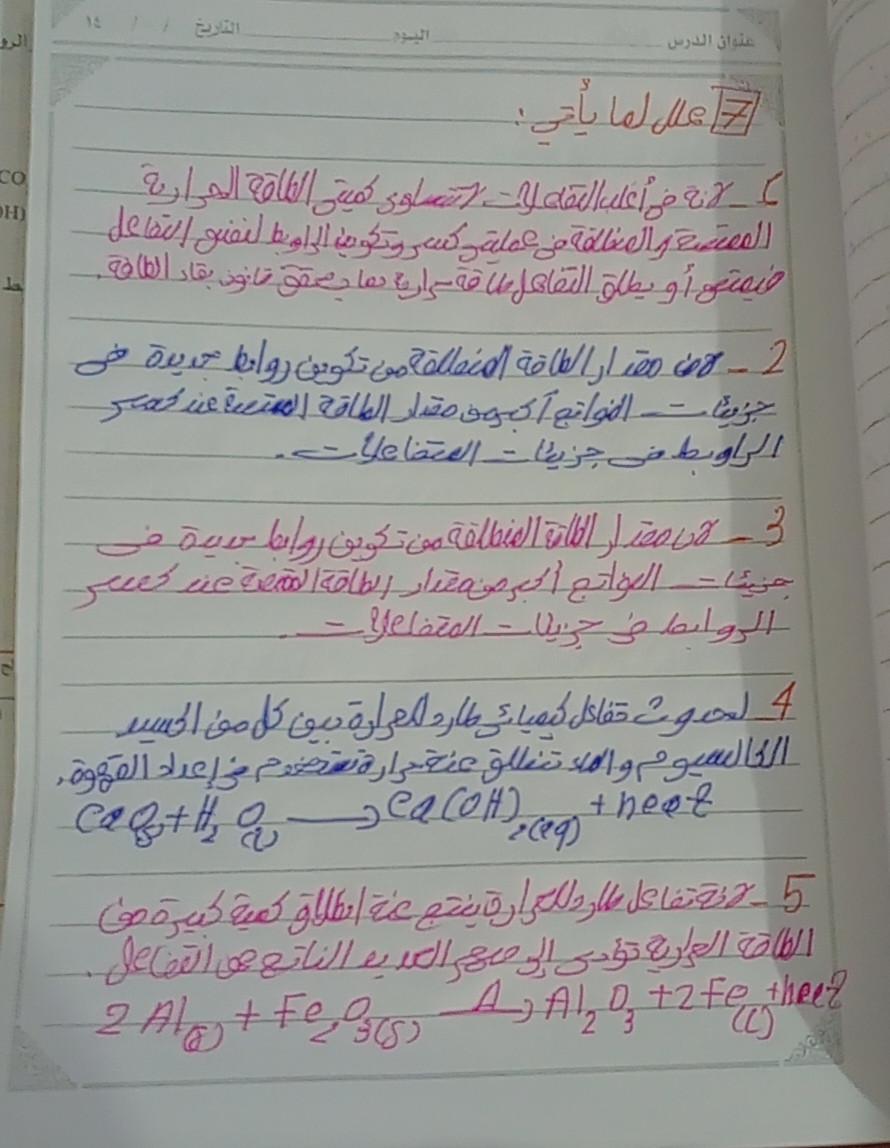 عنوان الدرس اليوم التاريخ / / ١٤
7 علل لما يأتي :
1 - لانه في أغلب التفاعلات لا تتساوى كميتي الطاقة الحرارية
الممتصة والمنطلقة في عمليتي كسر وتكوين الراوبط لنفس التفاعل
فيمتص أو يطلق التفاعل طاقة حرارية بما يحقق قانون بقاء الطاقة.
2 - لان مقدار الطاقة المنطلقة من تكوين روابط جديدة في
جزيئات النواتج أكبر من مقدار الطاقة الممتصة عند كسر
الراوبط في جزيئات المتفاعلات.
3 - لان مقدار الطاقة المنطلقة من تكوين روابط جديدة في
جزيئات النواتج أكبر من مقدار الطاقة الممتصة عند كسر
الروابط في جزيئات المتفاعلات.
4 لحدوث تفاعل كيميائي طارد للحرارة بين كل من اكسيد
الكالسيوم والماء تنطلق عنه حرارة تستخدم في إعداد القهوة.
CaO(s) + H2O(l) → Ca(OH)2(aq) + heat
5 - لانه تفاعل طارد للحرارة ينتج عنه انطلاق كمية كبيرة من
الطاقة الحرارية تؤدى إلى صهر الحديد الناتج من التفاعل.
2Al(s) + Fe2O3(s) Δ→ Al2O3 + 2Fe(l) + heat
CO
OH)